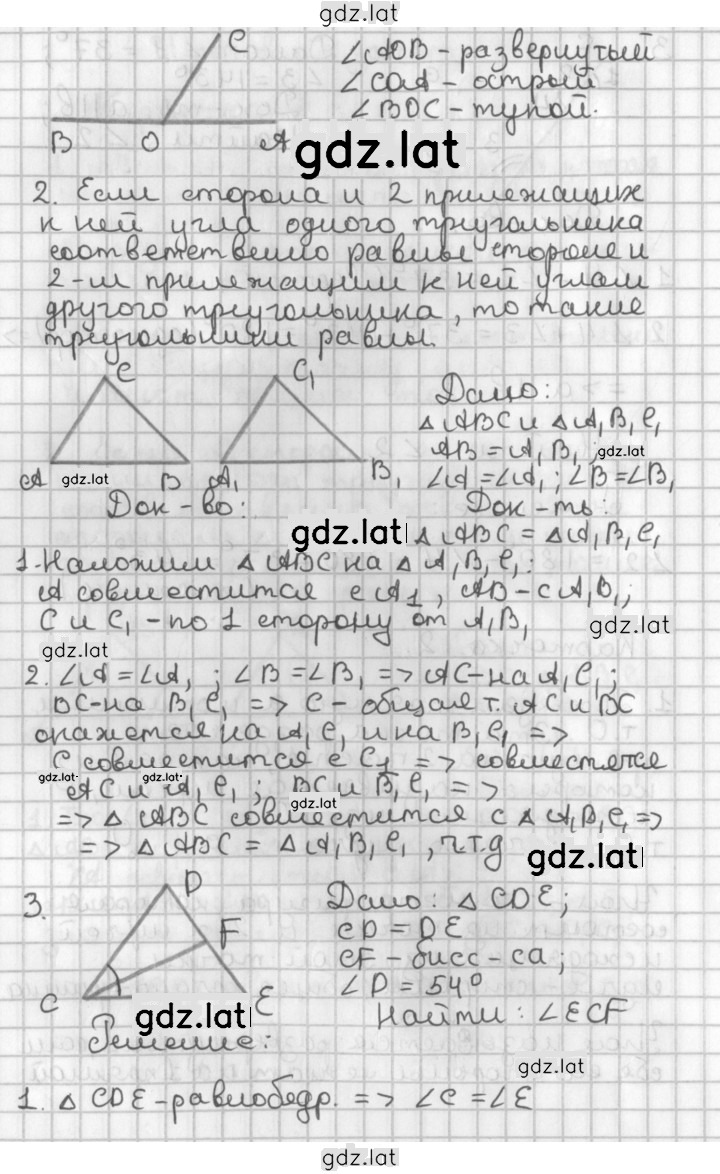 gdz.lat
C
∠AOB - развернутый
∠COA - острый
∠BOC - тупой.
B O A
gdz.lat
2. Если сторона и 2 прилежащих
к ней угла одного треугольника
соответственно равны стороне и
2-м прилежащим к ней углам
другого треугольника, то такие
треугольники равны.
C C₁
Дано:
△ABC и △A₁B₁C₁
AB = A₁B₁;
gdz.lat
∠A = ∠A₁; ∠B = ∠B₁
A gdz.lat B A₁ B₁
Док-во: Док-ть:
gdz.lat
△ABC = △A₁B₁C₁
1. Наложим △ABC на △A₁B₁C₁:
A совместится с A₁, AB - с A₁B₁;
C и C₁ - по 1 сторону от A₁B₁
gdz.lat
gdz.lat
2. ∠A = ∠A₁; ∠B = ∠B₁ => AC - на A₁C₁;
BC - на B₁C₁ => C - общая т. AC и BC
окажется на A₁C₁ и на B₁C₁ =>
C совместится с C₁ => совместятся
gdz.lat gdz.lat
AC и A₁C₁; BC и B₁C₁ =>
gdz.lat
=> △ABC совместится с △A₁B₁C₁ =>
=> △ABC = △A₁B₁C₁, ч.т.д
gdz.lat
3. D
F
C E
Дано: △CDE;
CD = DE
CF - бисс-са;
∠D = 54°
Найти: ∠ECF
gdz.lat
Решение:
gdz.lat
1. △CDE - равнобедр. => ∠C = ∠E
gdz.lat